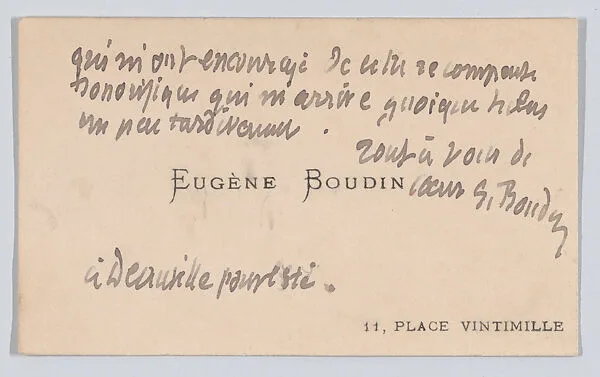 qui m'ont encouragé de cette recompense
honorifique qui m'arrive quoique helas
un peu tardivement .
tout à vous de
EUGÈNE BOUDIN coeur E. Boudin
à Deauville pour l'été .
11, PLACE VINTIMILLE